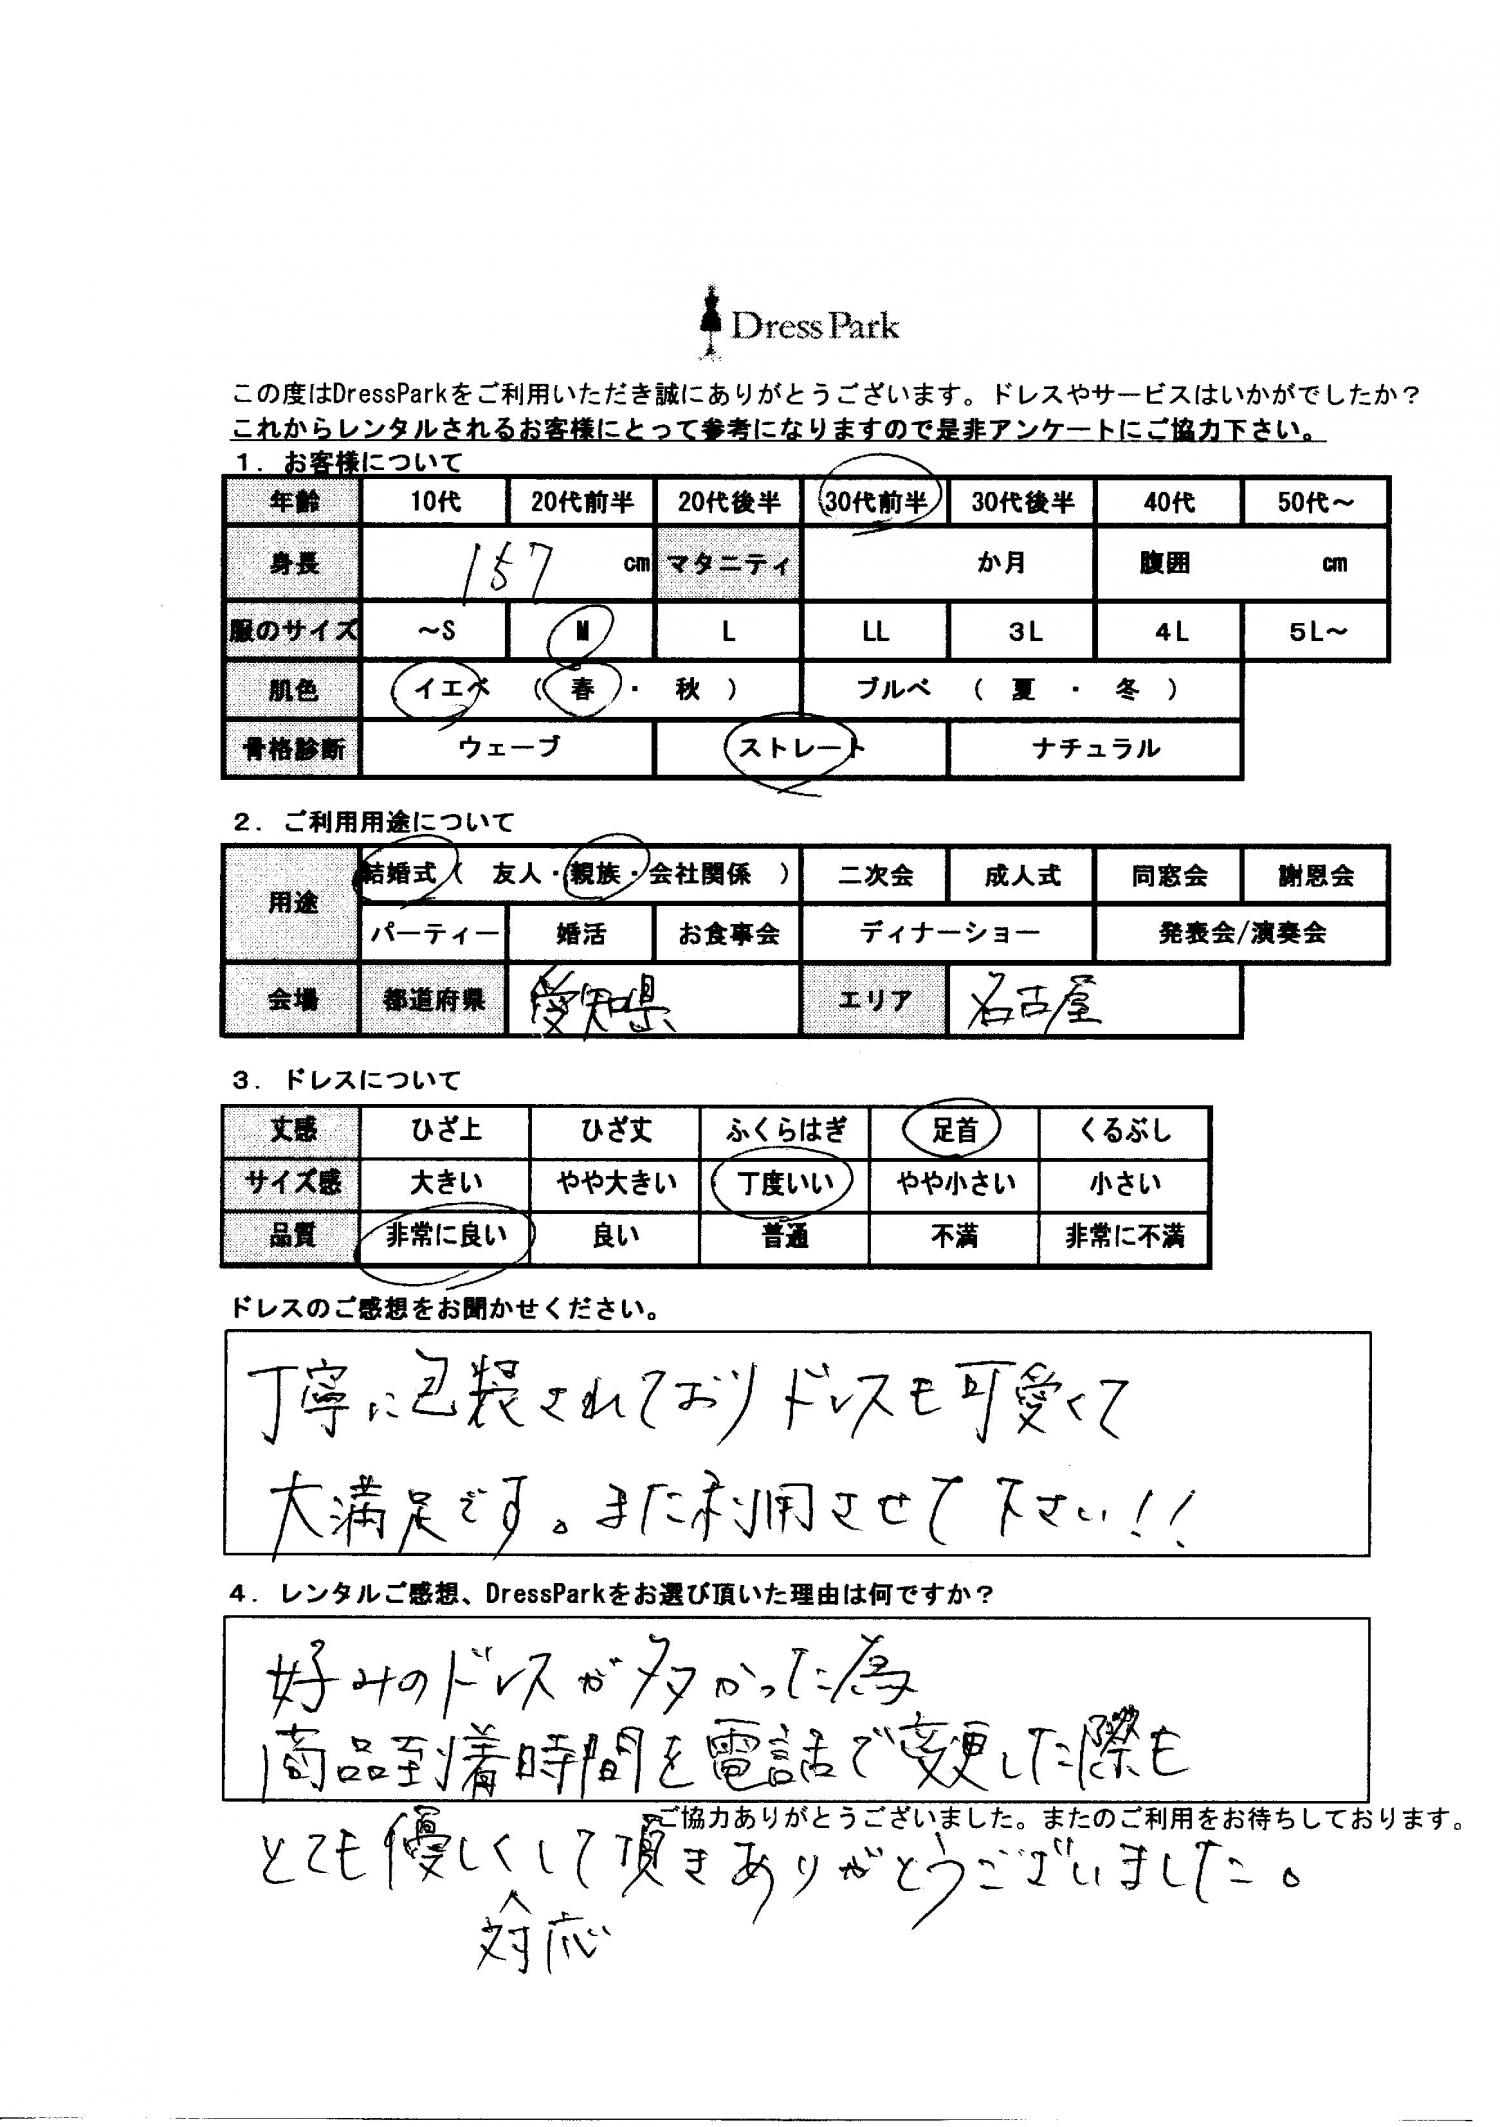 Dress Park
この度はDressParkをご利用いただき誠にありがとうございます。ドレスやサービスはいかがでしたか？
これからレンタルされるお客様にとって参考になりますので是非アンケートにご協力下さい。
１．お客様について
年齢 10代 20代前半 20代後半 30代前半 30代後半 40代 50代～
身長 157 cm マタニティ か月 腹囲 cm
服のサイズ ～S M L LL 3L 4L 5L～
肌色 イエベ （ 春 ・ 秋 ） ブルベ （ 夏 ・ 冬 ）
骨格診断 ウェーブ ストレート ナチュラル
２．ご利用用途について
用途 結婚式（ 友人・親族・会社関係 ） 二次会 成人式 同窓会 謝恩会
パーティー 婚活 お食事会 ディナーショー 発表会/演奏会
会場 都道府県 愛知県 エリア 名古屋
３．ドレスについて
丈感 ひざ上 ひざ丈 ふくらはぎ 足首 くるぶし
サイズ感 大きい やや大きい 丁度いい やや小さい 小さい
品質 非常に良い 良い 普通 不満 非常に不満
ドレスのご感想をお聞かせください。
丁寧に包装されておりドレスも可愛くて
大満足です。また利用させて下さい!!
４．レンタルご感想、DressParkをお選び頂いた理由は何ですか？
好みのドレスが多かった為
商品到着時間を電話で変更した際も
ご協力ありがとうございました。またのご利用をお待ちしております。
とても優しくして頂きありがとうございました。
対応